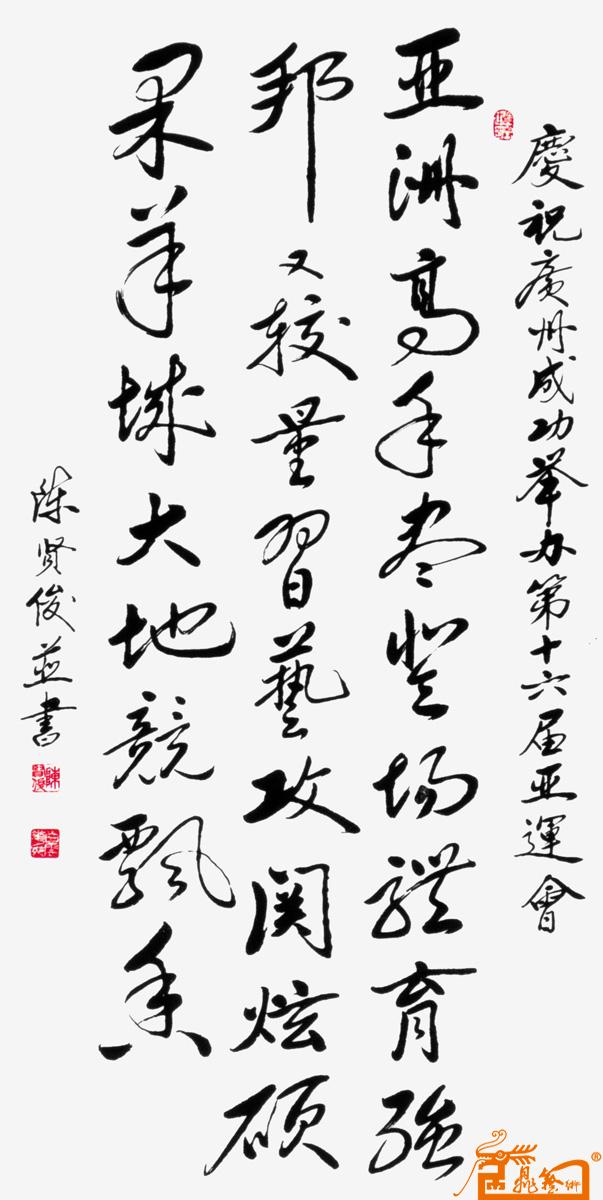 慶祝廣州成功举办第十六届亚運會
亚洲高手尽登场體育强
邦又较量習藝攻関炫硕
果羊城大地競飘香
陈贤俊並書